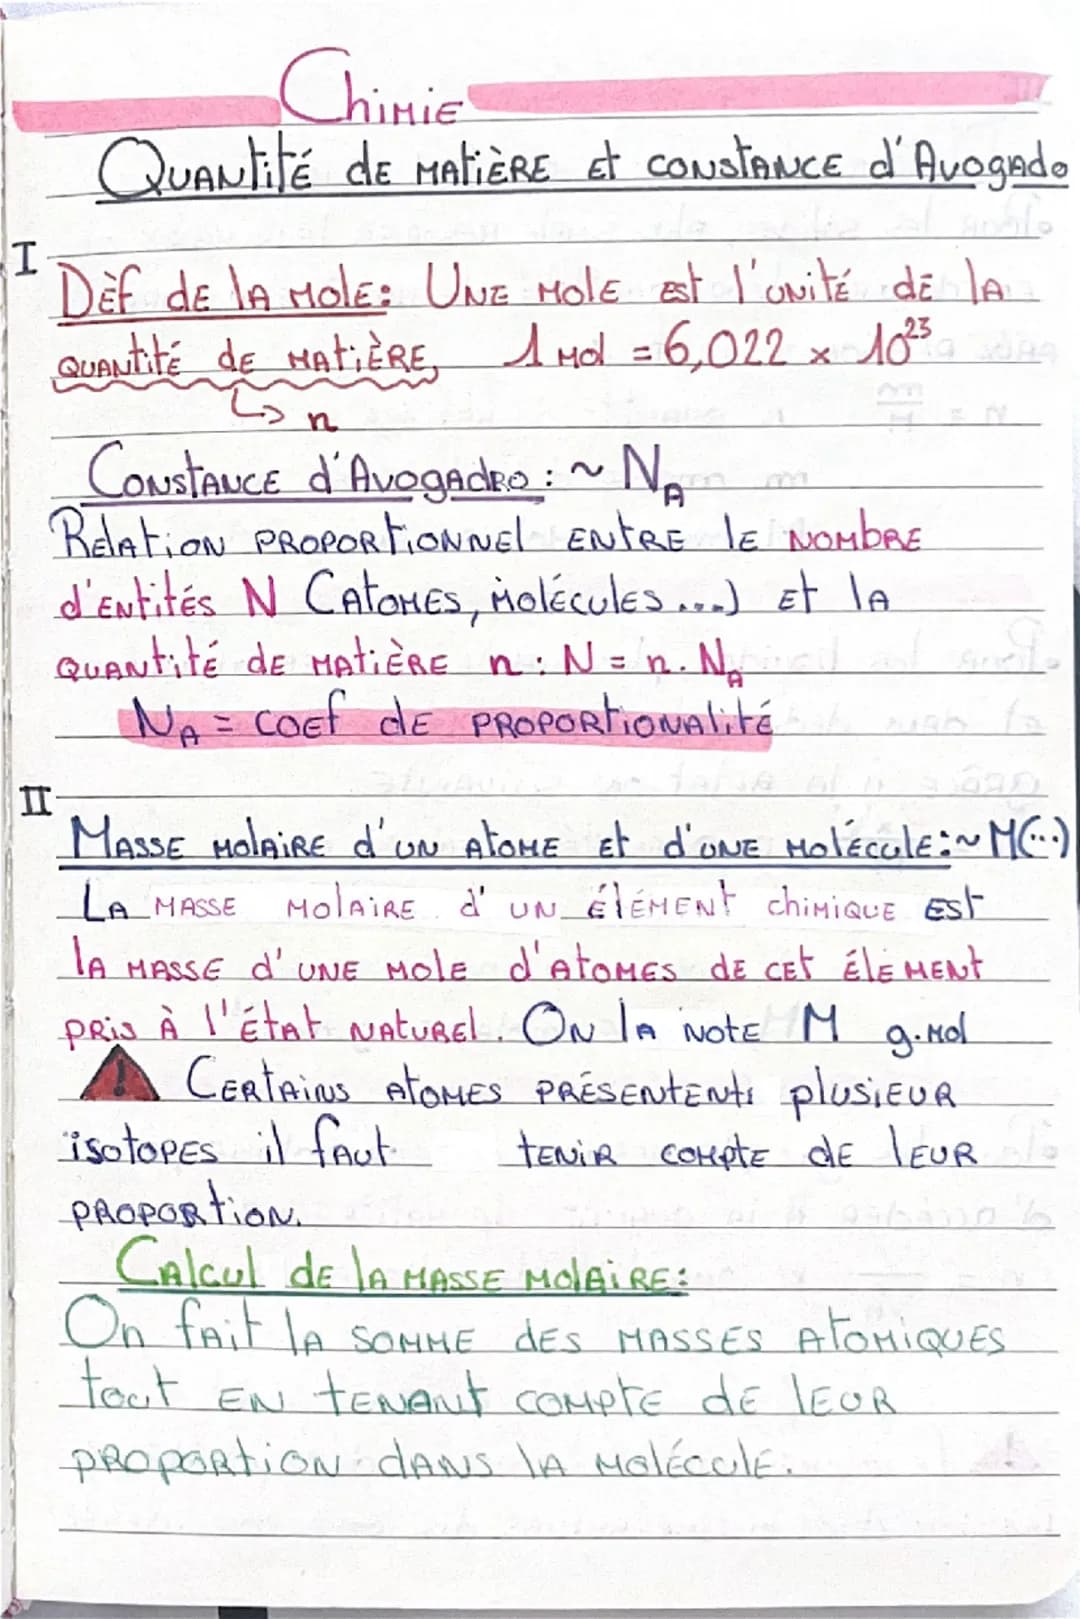 Chimie
Quantité de matière et constance d'Avogado
I
Dèf de la mole: Une mole est l'unité de la
quantité de matière, 1 mol = 6,022 x 10²³
↳ n
Constance d'Avogadro : ~ N_A
Relation proportionnel entre le nombre
d'entités N (atomes, molécules...) et la
quantité de matière n : N = n . N_A
N_A = coef de proportionalité
II
Masse molaire d'un atome et d'une molécule:~ M(...)
La masse molaire d'un élément chimique est
la masse d'une mole d'atomes de cet élément
pris à l'état naturel. On la note M g.mol
! Certains atomes présentent plusieur
isotopes il faut tenir compte de leur
proportion.
Calcul de la masse molaire:
On fait la somme des masses atomiques
tout en tenant compte de leur
proportion dans la molécule.